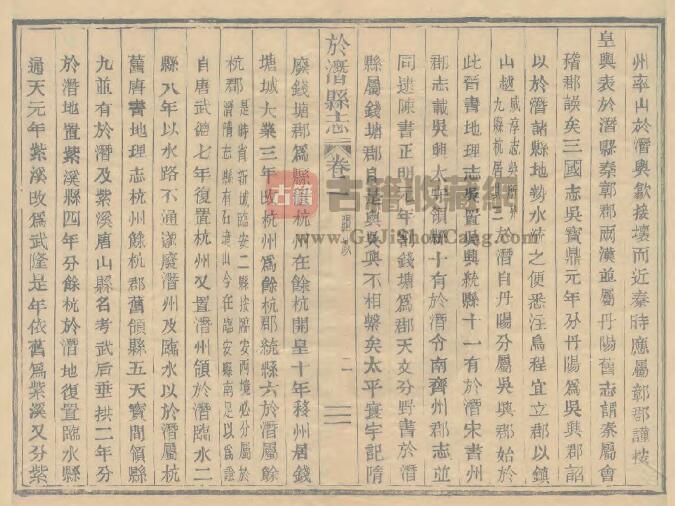 州率山於潛與歙接壤而近秦時應屬鄣郡謹按
皇輿表於潛縣秦鄣郡兩漢並屬丹陽舊志謂秦屬會
稽郡誤矣三國志吳寶鼎元年分丹陽爲吳興郡詔
以於潛諸縣地勢水流之便悉注烏程宜立郡以鎮
山越 咸淳志吳 九縣 三於潛自丹陽分屬吳興郡始於
此晉書地理志吳置吳興統縣十一有於潛宋書州
郡志載吳興太守領縣十有於潛令南齊州郡志並
同逮陳書正明元年割錢塘爲郡天文分野書於潛
縣屬錢塘郡自是與吳興不相繫矣太平寰宇記隋
於潛縣志 卷一 二
廢錢塘郡爲縣 杭州在餘杭開皇十年移州居錢
塘城大業三年改杭州爲餘杭郡統縣六於潛屬餘
杭郡 是時省新城臨安二縣按臨安兩境必分屬於潛隋志於潛縣有石鏡山今在臨安縣南足以爲證
自唐武德七年復置杭州又置潛州領於潛臨水二
縣八年以水路不通遂廢潛州及臨水以於潛屬杭
舊唐書地理志杭州餘杭郡舊領縣五天寶間領縣
九並有於潛及紫溪唐山縣名考武后垂拱二年分
於潛地置紫溪縣四年分餘杭於潛地復置臨水縣
通天元年紫溪改爲武隆是年依舊爲紫溪又分紫
古籍
古籍收藏網
www.GuJiShouCang.com